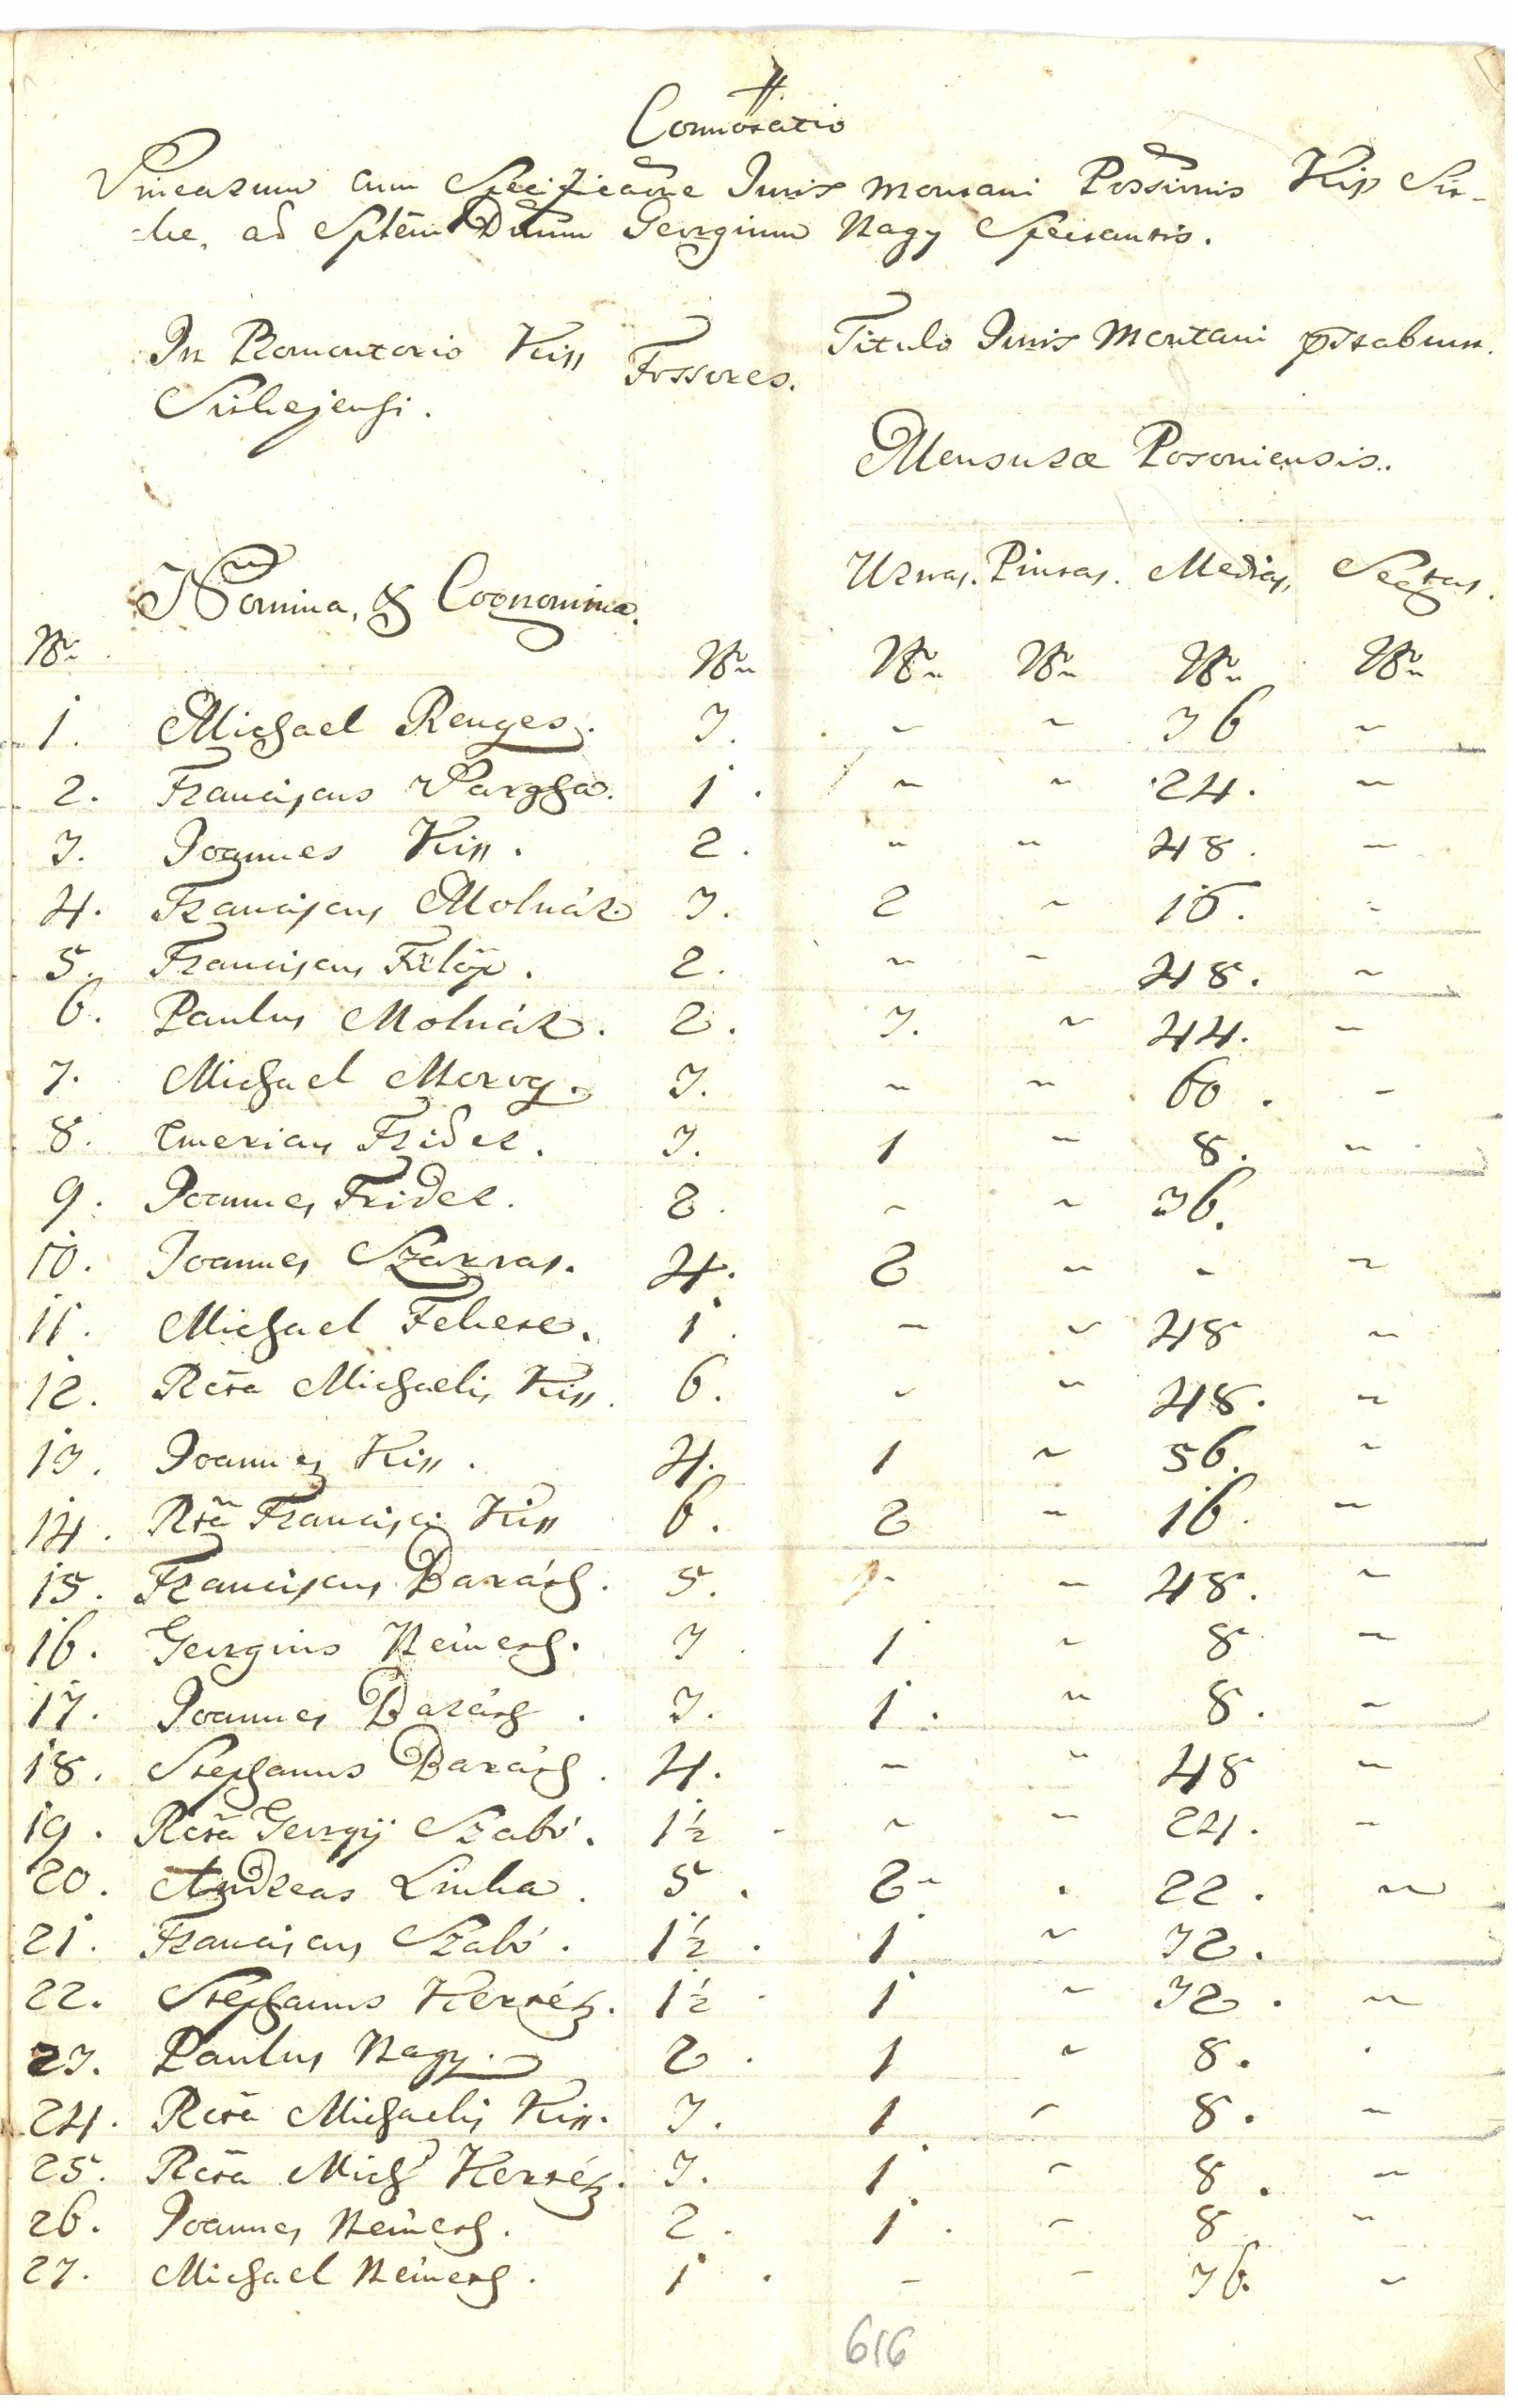 Connotatio
Vinearum cum Specificaōne Juris montani Possūnis Kis Sir-
-he, ad Sptēm Dnum Georgium Nagy Spectantis.
In Promontorio Kiss Fossores. Titulo Juris Montani pstabunt.
Sirhejensi.
Mensuræ Posoniensis.
Nomina, & Cognomina. Urnas. Pintas. Medias, Sectas.
Nr. Nr. Nr. Nr. Nr. Nr.
1. Michael Renges. 3. ~ ~ 36 ~
2. Franciscus Vargha. 1. ~ ~ 24. ~
3. Joannes Kiss. 2. ~ ~ 48. ~
4. Franciscus Molnár 3. 2 ~ 16. ~
5. Franciscus Fülöp. 2. ~ ~ 48. ~
6. Paulus Molnár. 2. 3. ~ 44. ~
7. Michael 3. ~ ~ 60. ~
8. Emericus Frider. 3. 1 ~ 8. ~
9. Joannes Frider. 2. ~ ~ 36.
10. Joannes Szarvas. 4. 2 ~ ~ ~
11. Michael Fekete. 1. ~ ~ 48 ~
12. Rcta Michaelis Kiss. 6. ~ ~ 48. ~
13. Joannes Kiss. 4. 1 ~ 56. ~
14. Rta Francisci Kiss 6. 2 ~ 16. ~
15. Franciscus Baráth. 5. ~ ~ 48. ~
16. Georgius Németh. 3 1 ~ 8 ~
17. Joannes Baráth. 3. 1. ~ 8. ~
18. Stephanus Baráth. 4. ~ ~ 48 ~
19. Rcta Georgij Szabó. 1½ ~ ~ 24. ~
20. Andreas Linka. 5. 2 ~ 22. ~
21. Franciscus Szabó. 1½. 1 ~ 32.
22. Stephanus Kertész. 1½ 1 ~ 32. ~
23. Paulus Nagy. 2. 1 ~ 8.
24. Rcta Michaelis Kiss. 3. 1 ~ 8. ~
25. Rcta Mich Kertész. 3. 1 ~ 8. ~
26. Joannes Németh. 2. 1. ~ 8 ~
27. Michael Németh. 1. ~ ~ 36. ~
616